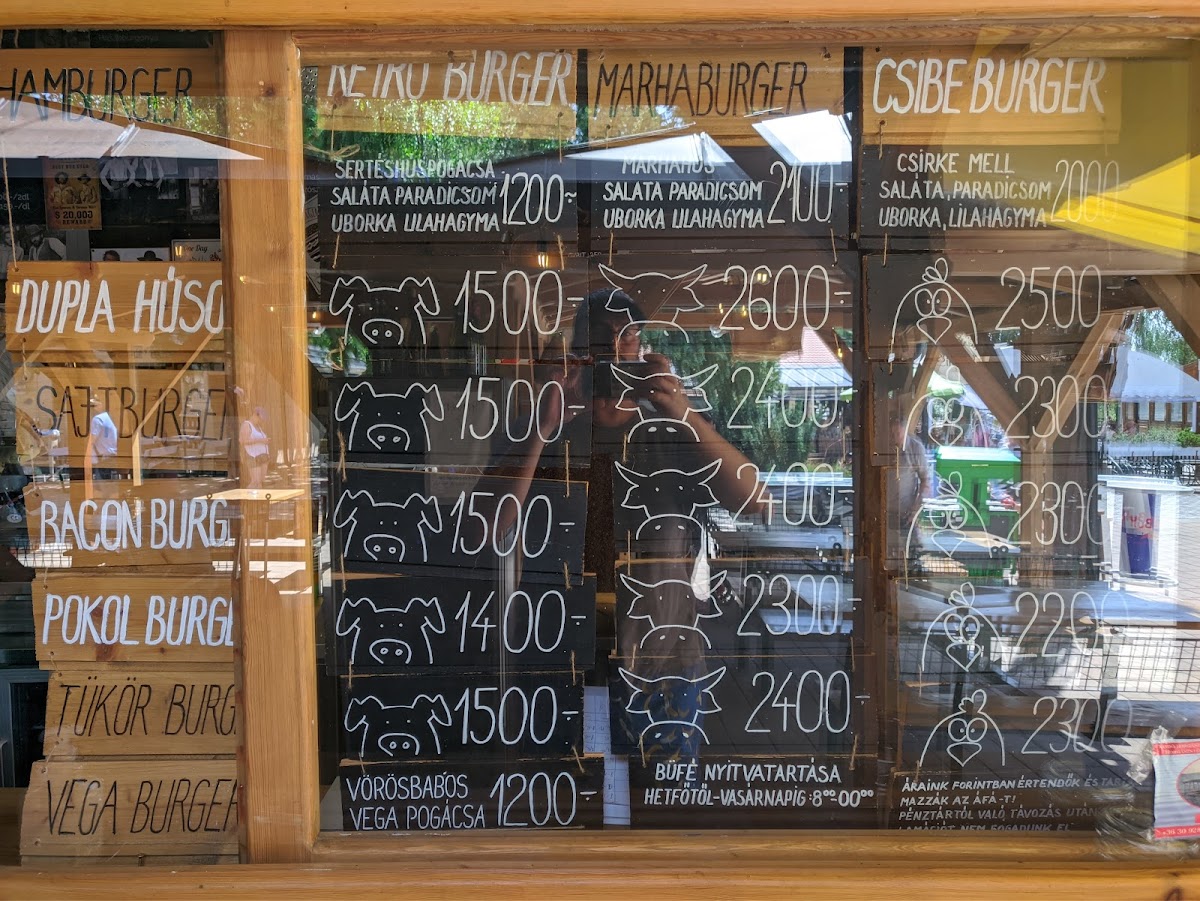 HAMBURGER
RETRO BURGER
MARHABURGER
CSIBE BURGER
$ 20,000
SERTÉSHÚSPOGÁCSA
SALÁTA PARADICSOM
UBORKA LILAHAGYMA
1200-
MARHAHÚS
SALÁTA PARADICSOM
UBORKA LILAHAGYMA
2100
CSIRKE MELL
SALÁTA, PARADICSOM
UBORKA, LILAHAGYMA
2000
DUPLA HÚSO
1500-
2600-
2500
SAJTBURGER
1500-
2400-
2300
BACON BURG
1500-
2400-
2300
POKOL BURGE
1400-
2300-
2200
TÜKÖR BURG
1500-
2400-
2300
VEGA BURGER
VÖRÖSBABOS
VEGA POGÁCSA
1200-
BÜFÉ NYITVATARTÁSA
HETFŐTŐL-VASÁRNAPIG:8⁰⁰-00⁰⁰
ÁRAINK FORINTBAN ÉRTENDŐK ÉS TAR
MAZZÁK AZ ÁFÁ-T!
PÉNZTÁRTÓL VALÓ TÁVOZÁS UTÁN
LAMÁCIÓT NEM FOGADUNK EL